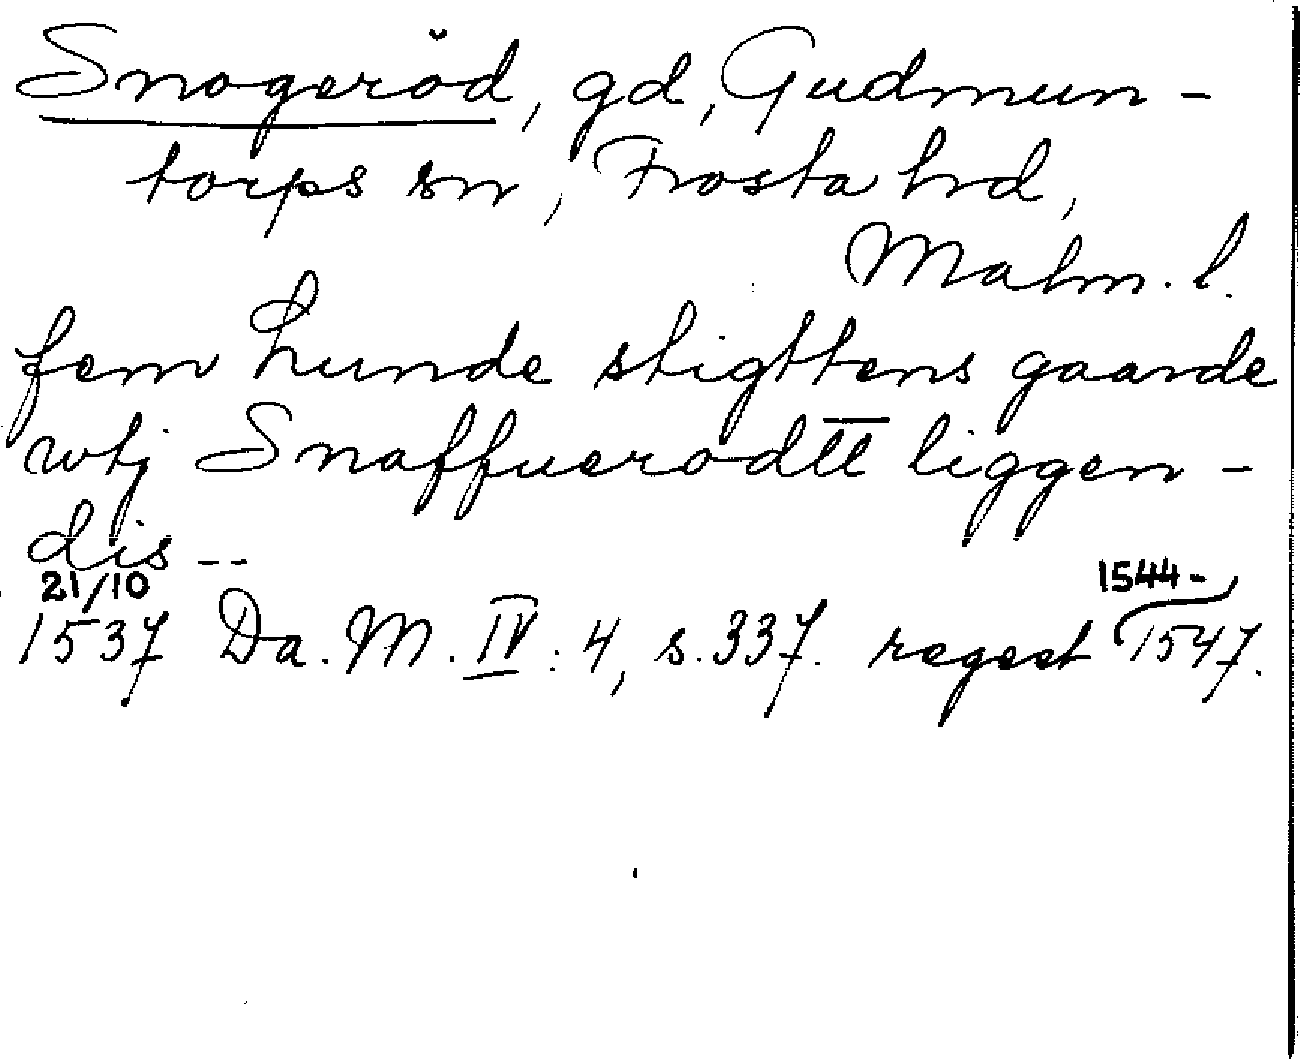 Snogeröd, gd, Gudmun-
torps sn, Frosta hrd,
Malm. l.
fem Lunde stigttens gaarde
wtj Snaffuerodtt liggen-
dis --
21/10 1544-
1537 Da. M. IV: 4, s. 337. regest 1547.